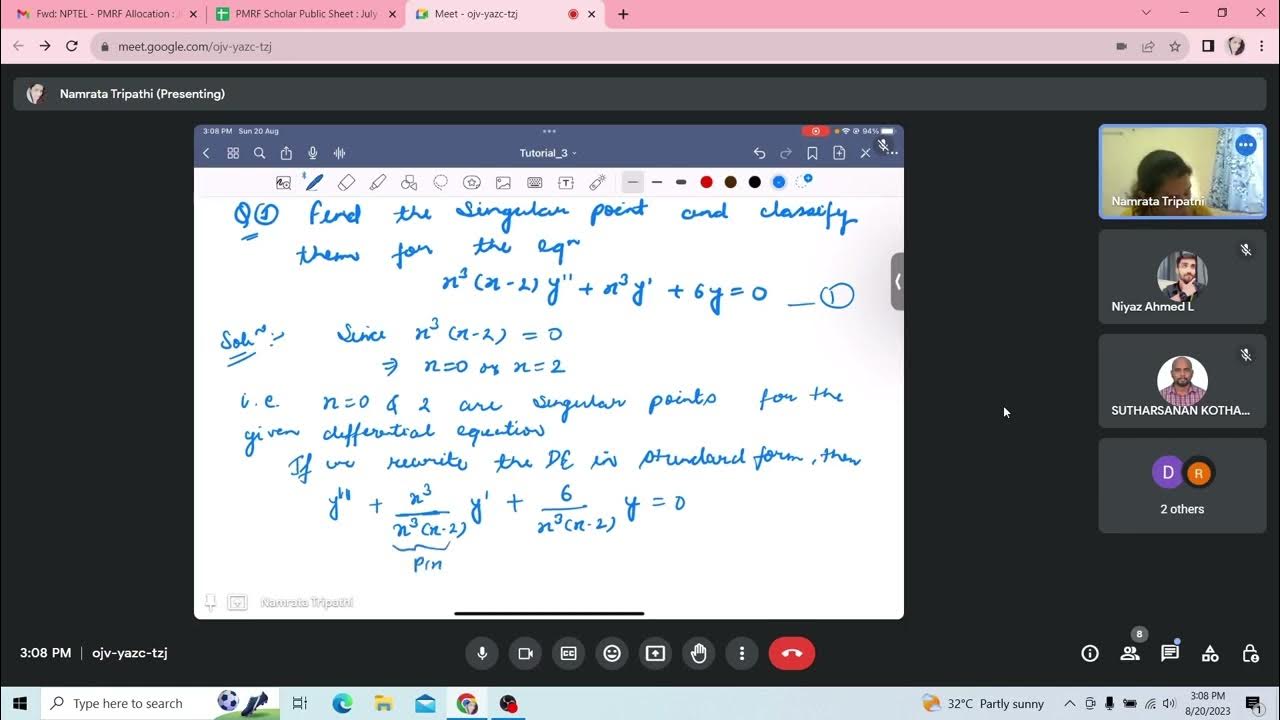 Fwd: NPTEL - PMRF Allocation : J
PMRF Scholar Public Sheet : July
Meet - ojv-yazc-tzj
meet.google.com/ojv-yazc-tzj
Namrata Tripathi (Presenting)
3:08 PM Sun 20 Aug
94%
Tutorial_3
Q① Find the singular point and classify
them for the eqⁿ
x³(x-2)y'' + x³y' + 6y = 0 —①
Solⁿ:- Since x³(x-2) = 0
⇒ x=0 or x=2
i.e. x=0 & 2 are singular points for the
given differential equation
If we rewrite the DE in standard form, then
y'' + x³/x³(x-2) y' + 6/x³(x-2) y = 0
P(x
Namrata Tripathi
Namrata Tripathi
Niyaz Ahmed L
SUTHARSANAN KOTHA...
D
R
2 others
3:08 PM | ojv-yazc-tzj
8
Type here to search
32°C Partly sunny
3:08 PM
8/20/2023
1